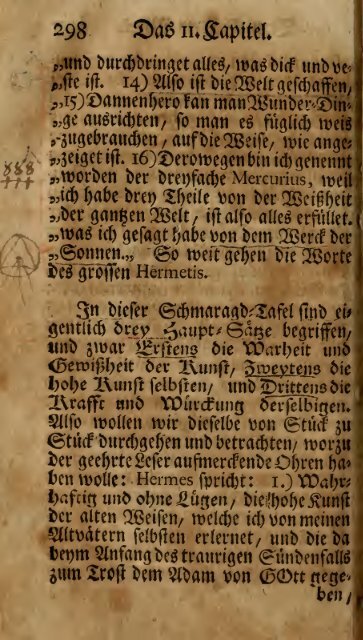 298 Das 11. Capitel.
„und durchdringet alles, was dick und ve-
„ste ist. 14) Also ist die Welt geschaffen,
„15) Dannenhero kan man Wunder-Din-
„ge ausrichten, so man es füglich weis
„zugebrauchen, auf die Weise, wie ange-
„zeiget ist. 16) Derowegen bin ich genennt
„worden der dreyfache Mercurius, weil
„ich habe drey Theile von der Weißheit
„der gantzen Welt, ist also alles erfüllet.
„was ich gesagt habe von dem Werck der
„Sonnen.„ So weit gehen die Worte
des grossen Hermetis.
In dieser Schmaragd-Tafel sind ei-
gentlich drey Haupt-Sätze begriffen,
und zwar Erstens die Warheit und
Gewißheit der Kunst, Zweytens die
hohe Kunst selbsten, und Drittens die
Krafft und Würckung derselbigen.
Also wollen wir dieselbe von Stück zu
Stück durchgehen und betrachten, worzu
der geehrte Leser aufmerckende Ohren ha-
ben wolle: Hermes spricht: 1.) Wahr-
hafftig und ohne Lügen, die hohe Kunst
der alten Weisen, welche ich von meinen
Altvätern selbsten erlernet, und die da
beym Anfang des traurigen Sündenfalls
zum Trost dem Adam von GOtt gege-
ben,